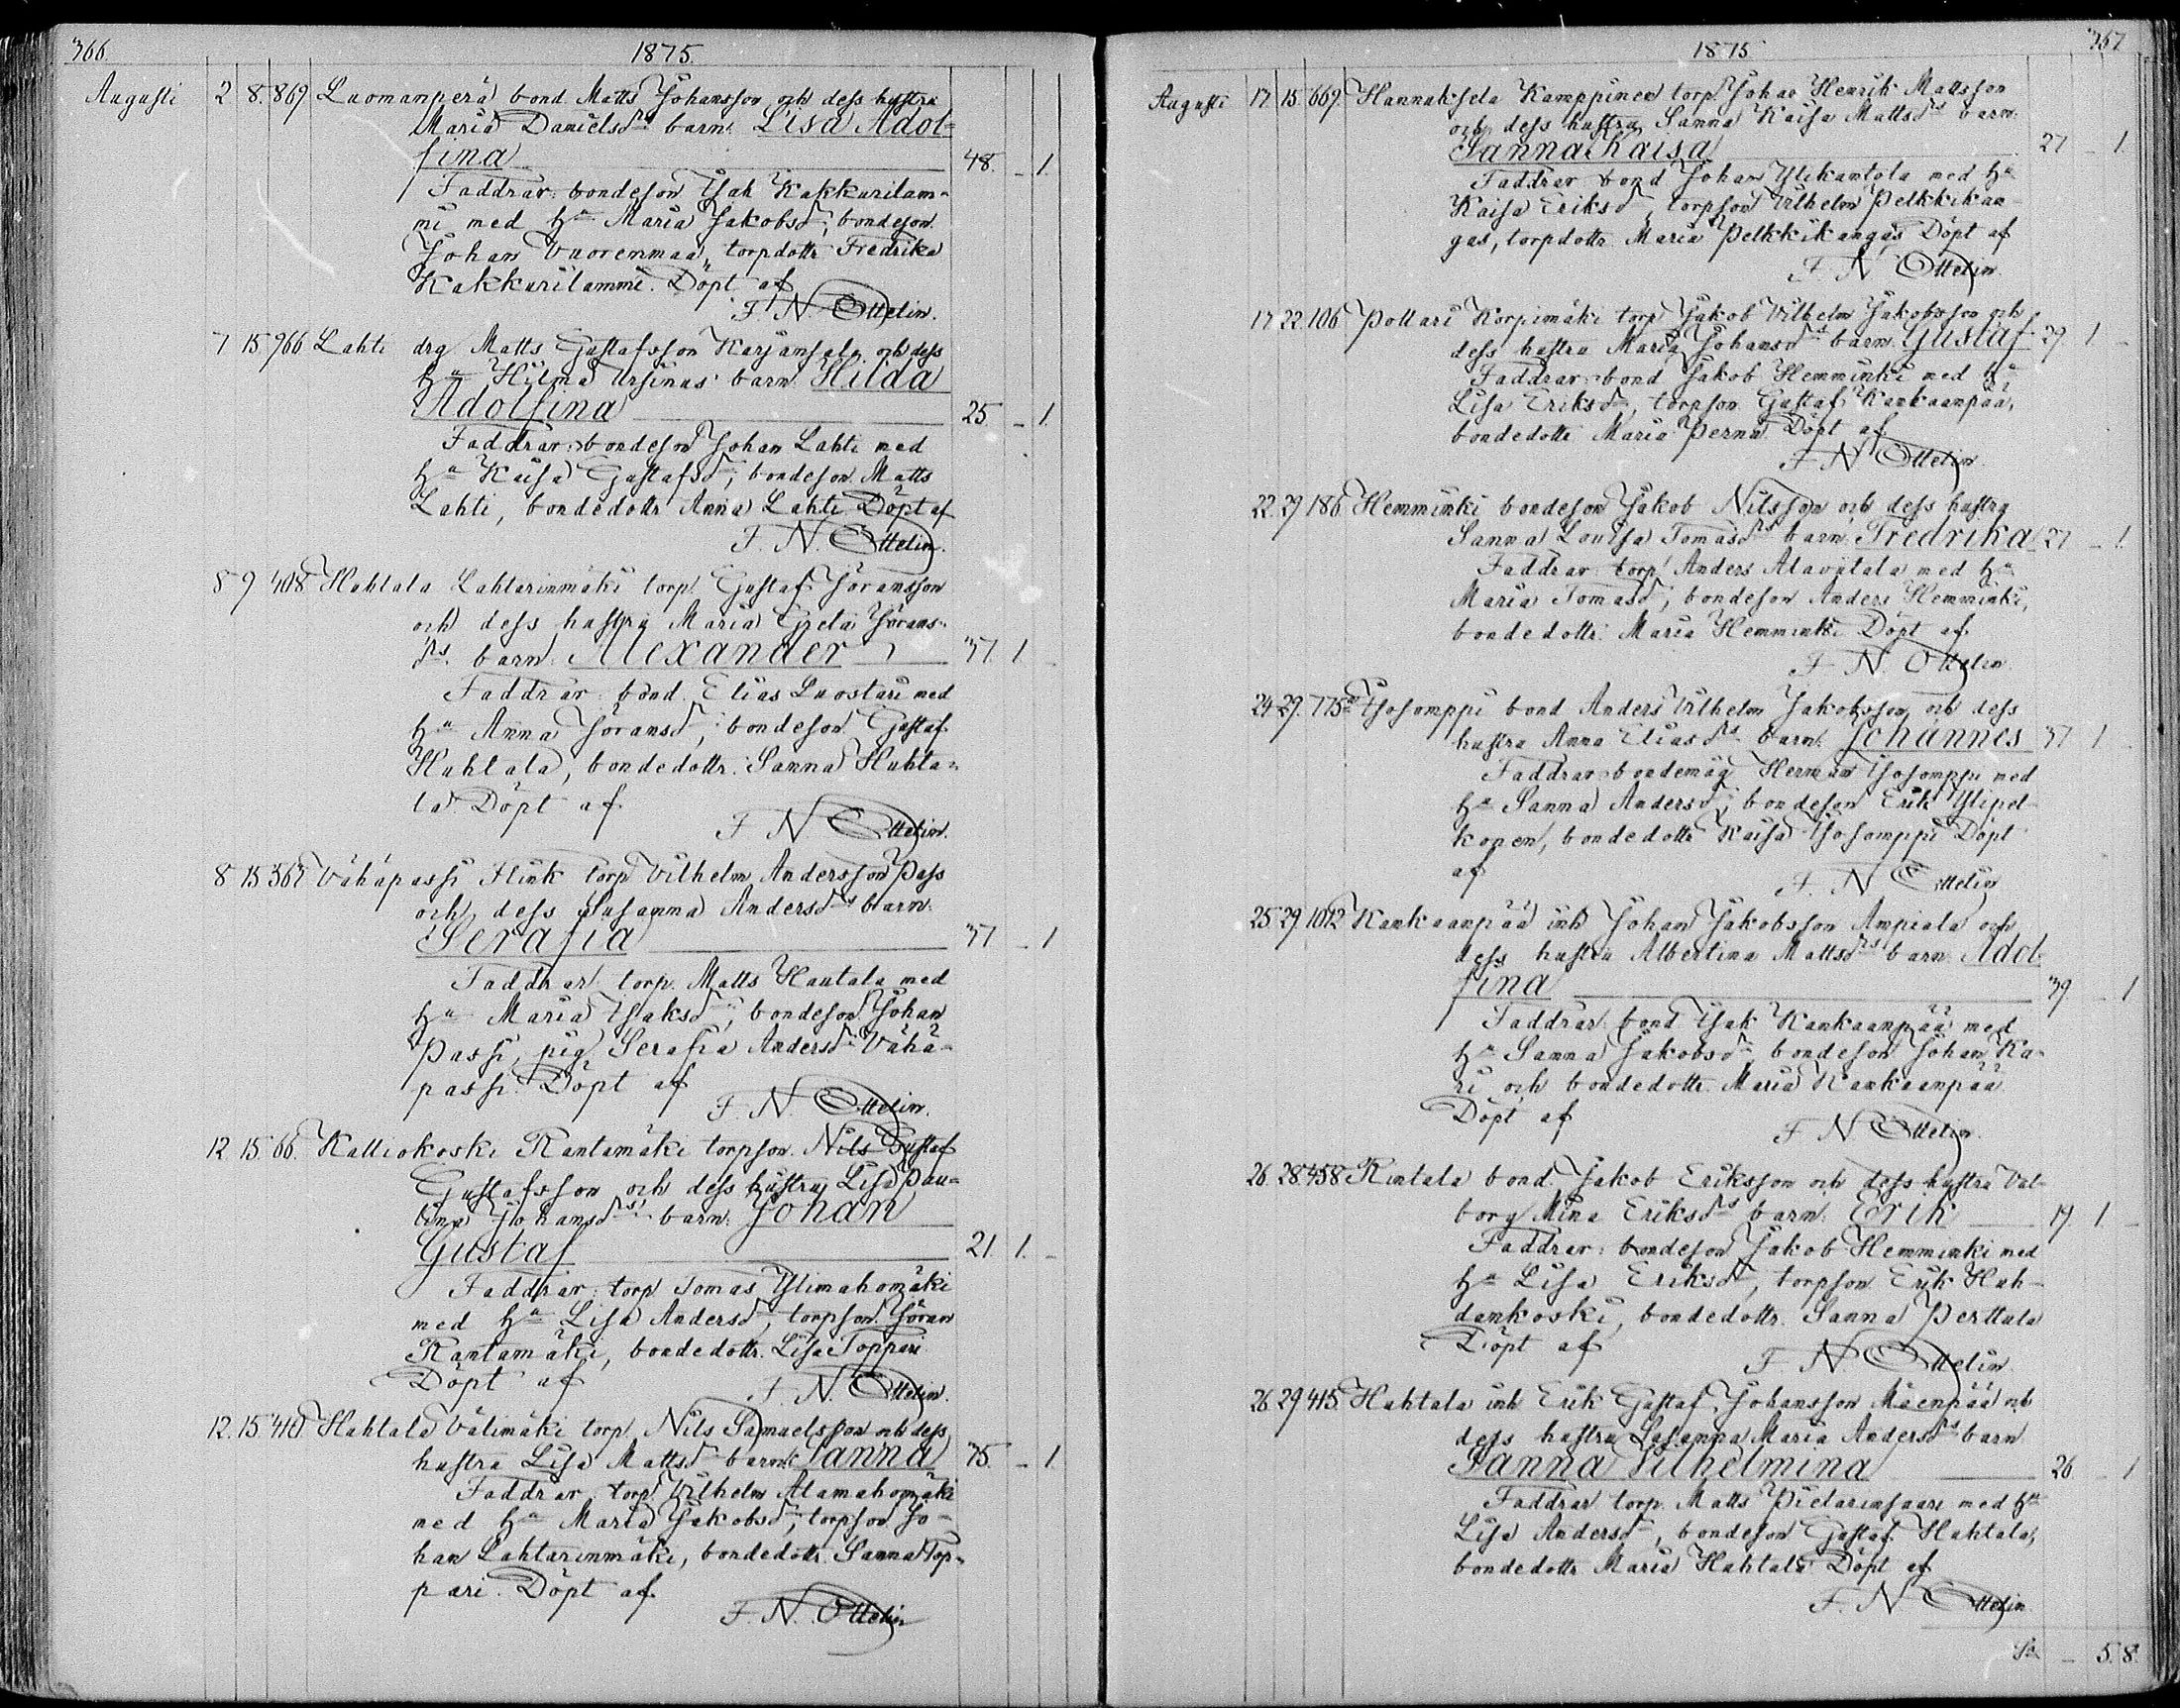 366.
1875.
Augusti 2 8. 869 Luomanperä bond. Matts Johansson och dess hustru
Maria Danielsdrs barn: Lisa Adol=
fina 48. - 1.
Faddrar: bondeson Isak Kakkurilam-
mi med hu Maria Jakobsd:r, bondeson
Johan Vuorenmaa, torpdottr Fredrika
Kakkurilammi. Döpt af
F. N. Ottelin.
7 15. 966 Lahti drg Matts Gustafsson Karjansalo och dess
hu Hilma Ursinus barn: Hilda
Adolfina 25. - 1.
Faddrar: bondeson Johan Lahti med
hu Kaisa Gustafsd:r, bondeson Matts
Lahti, bondedottr Anna Lahti. Döpt af
F. N. Ottelin.
8 9 408 Huhtala Lahtarinmäki torp. Gustaf Göransson
och dess hustru Maria Greta Görans-
drs barn: Alexander 37. 1. -
Faddrar: bond. Elias Luostari med
hu Anna Göransd:r, bondeson Gustaf
Huhtala, bondedottr. Sanna Huhta=
la. Döpt af
F. N. Ottelin.
8 15 362 Vähäpassi Flink torp Vilhelm Andersson Pass
och dess Susanna Andersdrs barn:
Serafia 37 - 1
Faddrar torp. Matts Hautala med
hu Maria Isaksd:r, bondeson Johan
Passi, pig. Serafia Andersd:r Vähä-
passi. Döpt af
F. N. Ottelin.
12. 15. 66. Kalliokoski Rantamäki torpson. Nils Gustaf
Gustafsson och dess hustru Lisa Pau=
lina Johansdrs barn: Johan
Gustaf 21. 1. -
Faddrar: torp Tomas Ylimahomäki
med hu Lisa Andersd:r, torpson Göran
Rantamäki, bondedottr. Lisa Toppari
Döpt af F. N. Ottelin.
12. 15. 410 Huhtala Välimäki torp. Nils Samuelsson och dess
hustru Lisa Mattsdrs barn: Sanna 35. - 1.
Faddrar: torp Vilhelm Alamahomäki
med hu Maria Jakobsd:r, torpson Jo-
han Lahtarinmäki, bondedottr. Sanna Top-
pari. Döpt af
F. N. Ottelin
367
1875
Augusti 17 15 669. Hannuksela Kamppinen torp. Johan Henrik Mattsson
och dess hustru Sanna Kaisa Mattsdrs barn:
Sanna Kaisa 27 - 1
Faddrar bond Johan Ylikantola med hu
Kaisa Eriksd:r, torpson Vilhelm Pelkkikan-
gas, torpdottr. Maria Pelkkikangas Döpt af
F. N Ottelin.
17 22. 106 Pollari Korpimäki torp Jakob Vilhelm Jakobsson och
dess hustru Maria Johansdrs barn: Gustaf 29. 1 -
Faddrar: bond Jakob Hemminki med hu
Lisa Eriksd:r, torpson Gustaf Kankaanpää,
bondedottr Maria Perna. Döpt af
F. N Ottelin
22. 29 186 Hemminki bondeson Jakob Nilsson och dess hustru
Sanna Lovisa Tomasdrs barn: Fredrika 27 - 1.
Faddrar: torp Anders Alaviitala med hu
Maria Tomasd:r, bondeson Anders Hemminki,
bondedottr: Maria Hemminki. Döpt af
F. N. Ottelin
24 29. 775 Isosomppi bond Anders Vilhelm Jakobsson och dess
hustru Anna Eliasdrs barn: Johannes 37 1. -
Faddrar: bondemåg Herman Isosomppi med
hu Sanna Andersd:r, bondeson Erik Ylipel-
konen, bondedottr Kaisa Isosomppi Döpt
af F. N Ottelin
25. 29. 1012 Kankaanpää inh Johan Jakobsson Ampiala och
dess hustru Albertina Mattsdrs barn: Adol
fina 39. - 1
Faddrar: bond Isak Kankaanpää med
hu Sanna Jakobsd:r bondeson Johan Ka-
ri och bondedottr. Maria Kankaanpää
Döpt af F N Ottelin.
26. 28. 458 Rintala bond. Jakob Eriksson och dess hustru Val-
borg Mina Eriksdrs barn: Erik 19. 1. -
Faddrar: bondeson Jakob Hemminki med
hu Lisa Eriksd:r, torpson Erik Huh-
dankoski, bondedottr. Sanna Perttula
Döpt af F N Ottelin.
26. 29 415. Huhtala inh Erik Gustaf Johansson Mäenpää och
dess hustru Susanna Maria Andersdrs barn
Sanna Vilhelmina 26. - 1
Faddrar torp. Matts Pietarinsaari med hu
Lisa Andersd:r, bondeson Gustaf Huhtala,
bondedottr Maria Huhtala Döpt af
F. N Ottelin
Sa - 5. 8.